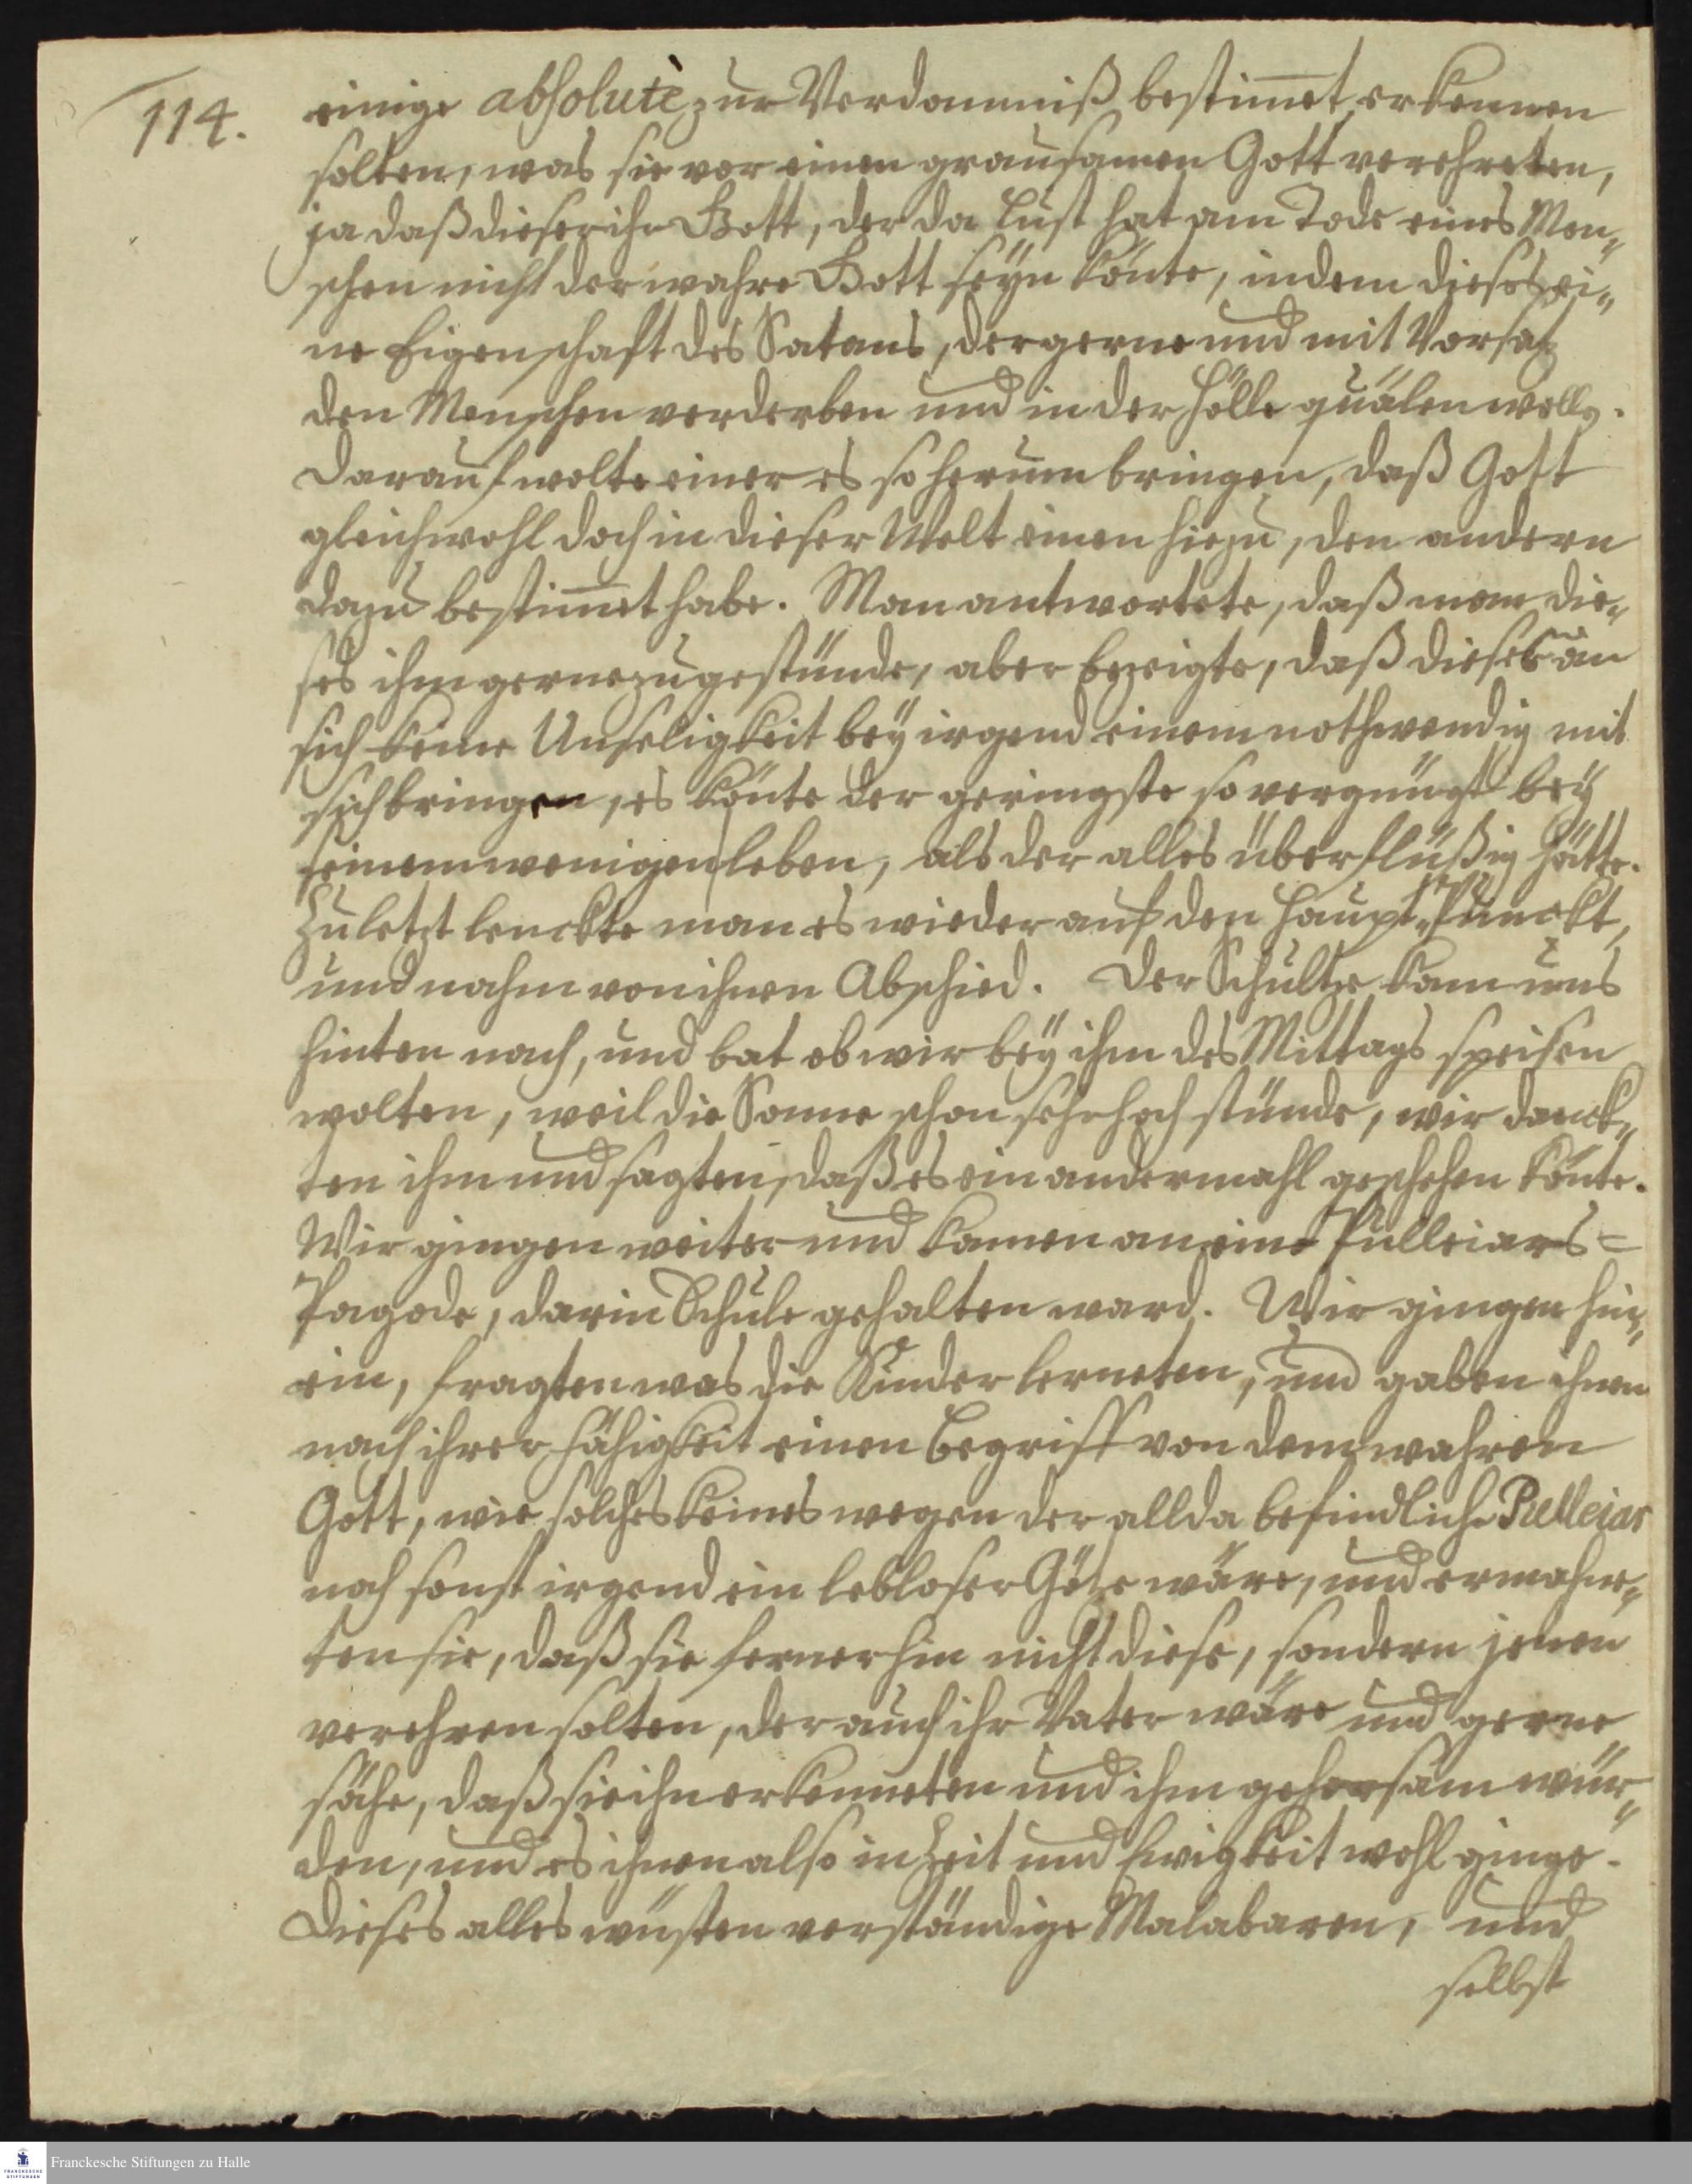 114.
einige absolutè zur Verdamniß bestim̅et erkennen
solten, was sie vor einen grausamen Gott verehreten,
ja daß dieser ihr Gott, der da Lust hat am Tode eines Men„
schen nicht der wahre Gott seÿn könte, indem dieses ei„
ne Eigenschaft des Satans, der gerne und mit Vorsatz
den Menschen verderben und in der Hölle quälen wolle.
Darauf wolte einer es so herum bringen, daß Gott
gleichwohl doch in dieser Welt einen hiezu, den andern
dazu bestim̅et habe. Man antwortete, daß man die„
ses ihm gerne zugestünde, aber bezeigte, daß dieses an
sich keine Unseligkeit beÿ irgend einem nothwendig mit
sich bringen, es könte der geringste so vergnügt beÿ
seinem wenigen leben, als der alles überflüßig hätte.
Zuletzt lenckte man es wieder auf den Haupt„Punckt,
und nahm von ihnen Abschied. Der Schultze kam uns
hinten nach, und bat ob wir beÿ ihm des Mittags speisen
wolten, weil die Sonne schon sehr hoch stünde, wir danck„
ten ihm und sagten, daß es ein andermahl geschehen könte.
Wir gingen weiter und kamen an eine Pulleiars=
Pagode, darin Schule gehalten ward. Wir gingen hin„
ein, fragten was die Kinder lerneten, und gaben ihnen
nach ihrer Fähigkeit einen Begriff von dem wahren
Gott, wie solches keines wegen der allda befindliche Pulleiar
noch sonst irgend ein lebloser Götze wäre, und ermahne„
ten sie, daß sie fernerhin nicht diese, sondern jenen
verehren solten, der auch ihr Vater wäre und gerne
sähe, daß sie ihn erkenneten und ihm gehorsam wür„
den, und es ihnen also in Zeit und Ewigkeit wohl ginge.
Dieses alles wüsten verständige Malabaren, und
selbst
Franckesche Stiftungen zu Halle
FRANCKESCHE
STIFTUNGEN